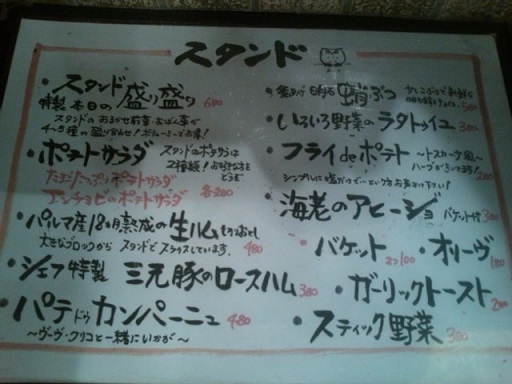 スタンド
・スタンド盛り盛り 680
特製 本日の
スタンドのおまかせ前菜・おばん菜が
4〜5種の盛り合わせ!ボリュームでお得!
・ポテトサラダ
スタンドのポテサラは
2種類!お好きな方を
どうぞ。
たまごたっぷりポテトサラダ
アンチョビのポテトサラダ 各280
・パルマ産18ヵ月熟成の生ハム
大きなブロックから スタンドでスライスしています。 480
・シェフ特製 三元豚のロースハム 380
・パテ ドゥ カンパーニュ 480
〜ヴーヴ・クリコと一緒にいかが〜
明石 蛸ぶつ
・いろいろ野菜のラタトゥイユ 380
・フライdeポテト 〜トスカーナ風〜
ハーブがきいてます! 280
シンプルに塩だけで…という方お申付け下さい!
・海老のアヒージョ バケット付
・バケット 2コ100
・オリーヴ 180
・ガーリックトースト 200
・スティック野菜 380